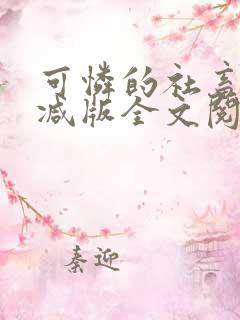 可怜的社畜
减版全文阅
秦迎